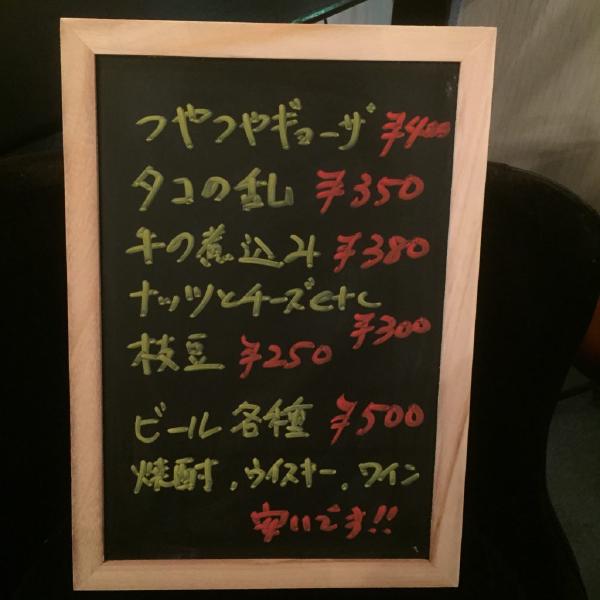 つやつやギョーザ ¥400
タコの乱 ¥350
牛の煮込み ¥380
ナッツとチーズetc
¥300
枝豆 ¥250
ビール各種 ¥500
焼酎、ウイスキー、ワイン
安いです!!